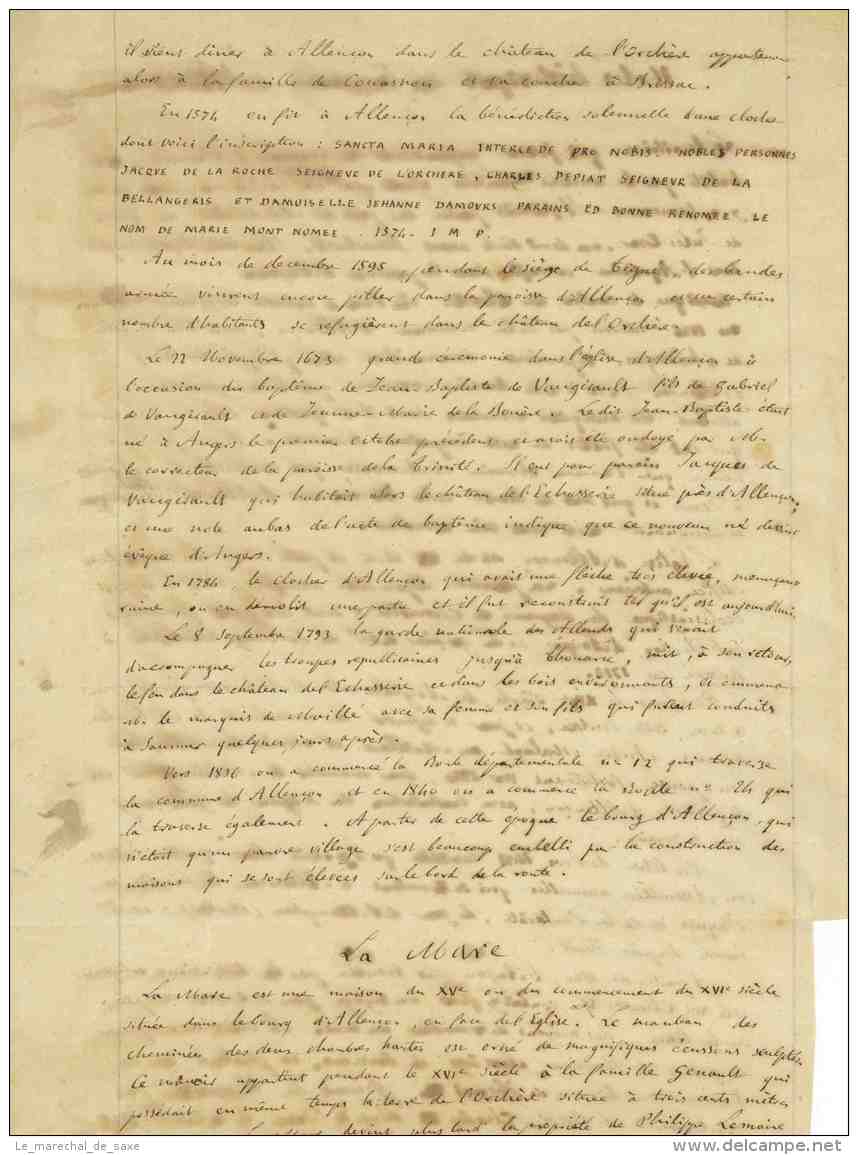 il vient diner à Allençon dans le château de l'Orchère appartenan
alors à la famille de et va coucher à Brissac.
En 1574 on fit à Allençon la bénédiction solennelle d'une cloche
dont voici l'inscription : SANCTA MARIA INTERCEDE PRO NOBIS. NOBLES PERSONNES
JACQVE DE LA ROCHE SEIGNEVE DE L'ORCHERE, CHARLES DEPIAT SEIGNEVR DE LA
BELLANGERIS ET DAMOISELLE JEHANNE DAMOVRS PARAINS ED BONNE RENOMEE LE
NOM DE MARIE MONT NOMEE. 1574. J M P.
Au mois de decembre 1595, pendant le siège de Tigné, des bandes
armée vinrent encore piller dans la paroisse d'Allençon et un certain
nombre d'habitants se refugièrent dans le château de l'Orchère
Le 22 Novembre 1673 grande cérémonie dans l'église d'Allençon à
l'occasion du baptême de Jean-Baptiste de Vaugirault fils de Gabriel
de Vaugirault et de Jeanne-Marie de la Bouère. Le dit Jean-Baptiste était
né à Angers le premier Octobre précédent et avait été ondoyé par Mr
le correcteur de la paroisse de la Trinité. Il eut pour parain Jacques de
Vaugirault qui habitait alors le château de l'Echasserie situé près d'Allençon,
et une note au bas de l'acte de baptême indique que ce nouveau né devint
évêque d'Angers.
En 1784, le clocher d'Allençon qui avait une flèche très élevée, menaçant
ruine, on en démolit une partie et il fut reconstruit tel qu'il est aujourd'hui.
Le 8 Septembre 1793 la garde nationale des Alleuds qui venait
d'accompagner les troupes republicaines jusqu'à Thouarcé, mit, à son retour,
le feu dans le château de l'Echasserie et dans les bois environnants, et emmena
Mr le marquis de avec sa femme et son fils qui furent conduits
à Saumur quelques jours après.
Vers 1836 on a commencé la Route départementale n° 12 qui traverse
la commune d'Allençon, et en 1840 on a commencé la Route n° 24 qui
la traverse également. A partir de cette époque le bourg d'Allençon, qui
n'était qu'un pauvre village s'est beaucoup embelli par la construction des
maisons qui se sont élevées sur le bord de la route.
La Mare
La Mare est une maison du XVe ou du commencement du XVIe siècle
située dans le bourg d'Allençon, en face de l'Eglise. Le manteau des
cheminées des deux chambres hautes est orné de magnifiques écussons sculptés.
Ce manoir appartint pendant le XVIe siècle à la famille Genault qui
possédait en même temps la terre de l'Orchère située à trois cents mètres
devint plus tard la propriété de Philippe Lemoine
Le_marechal_de_saxe
www.delcampe.net